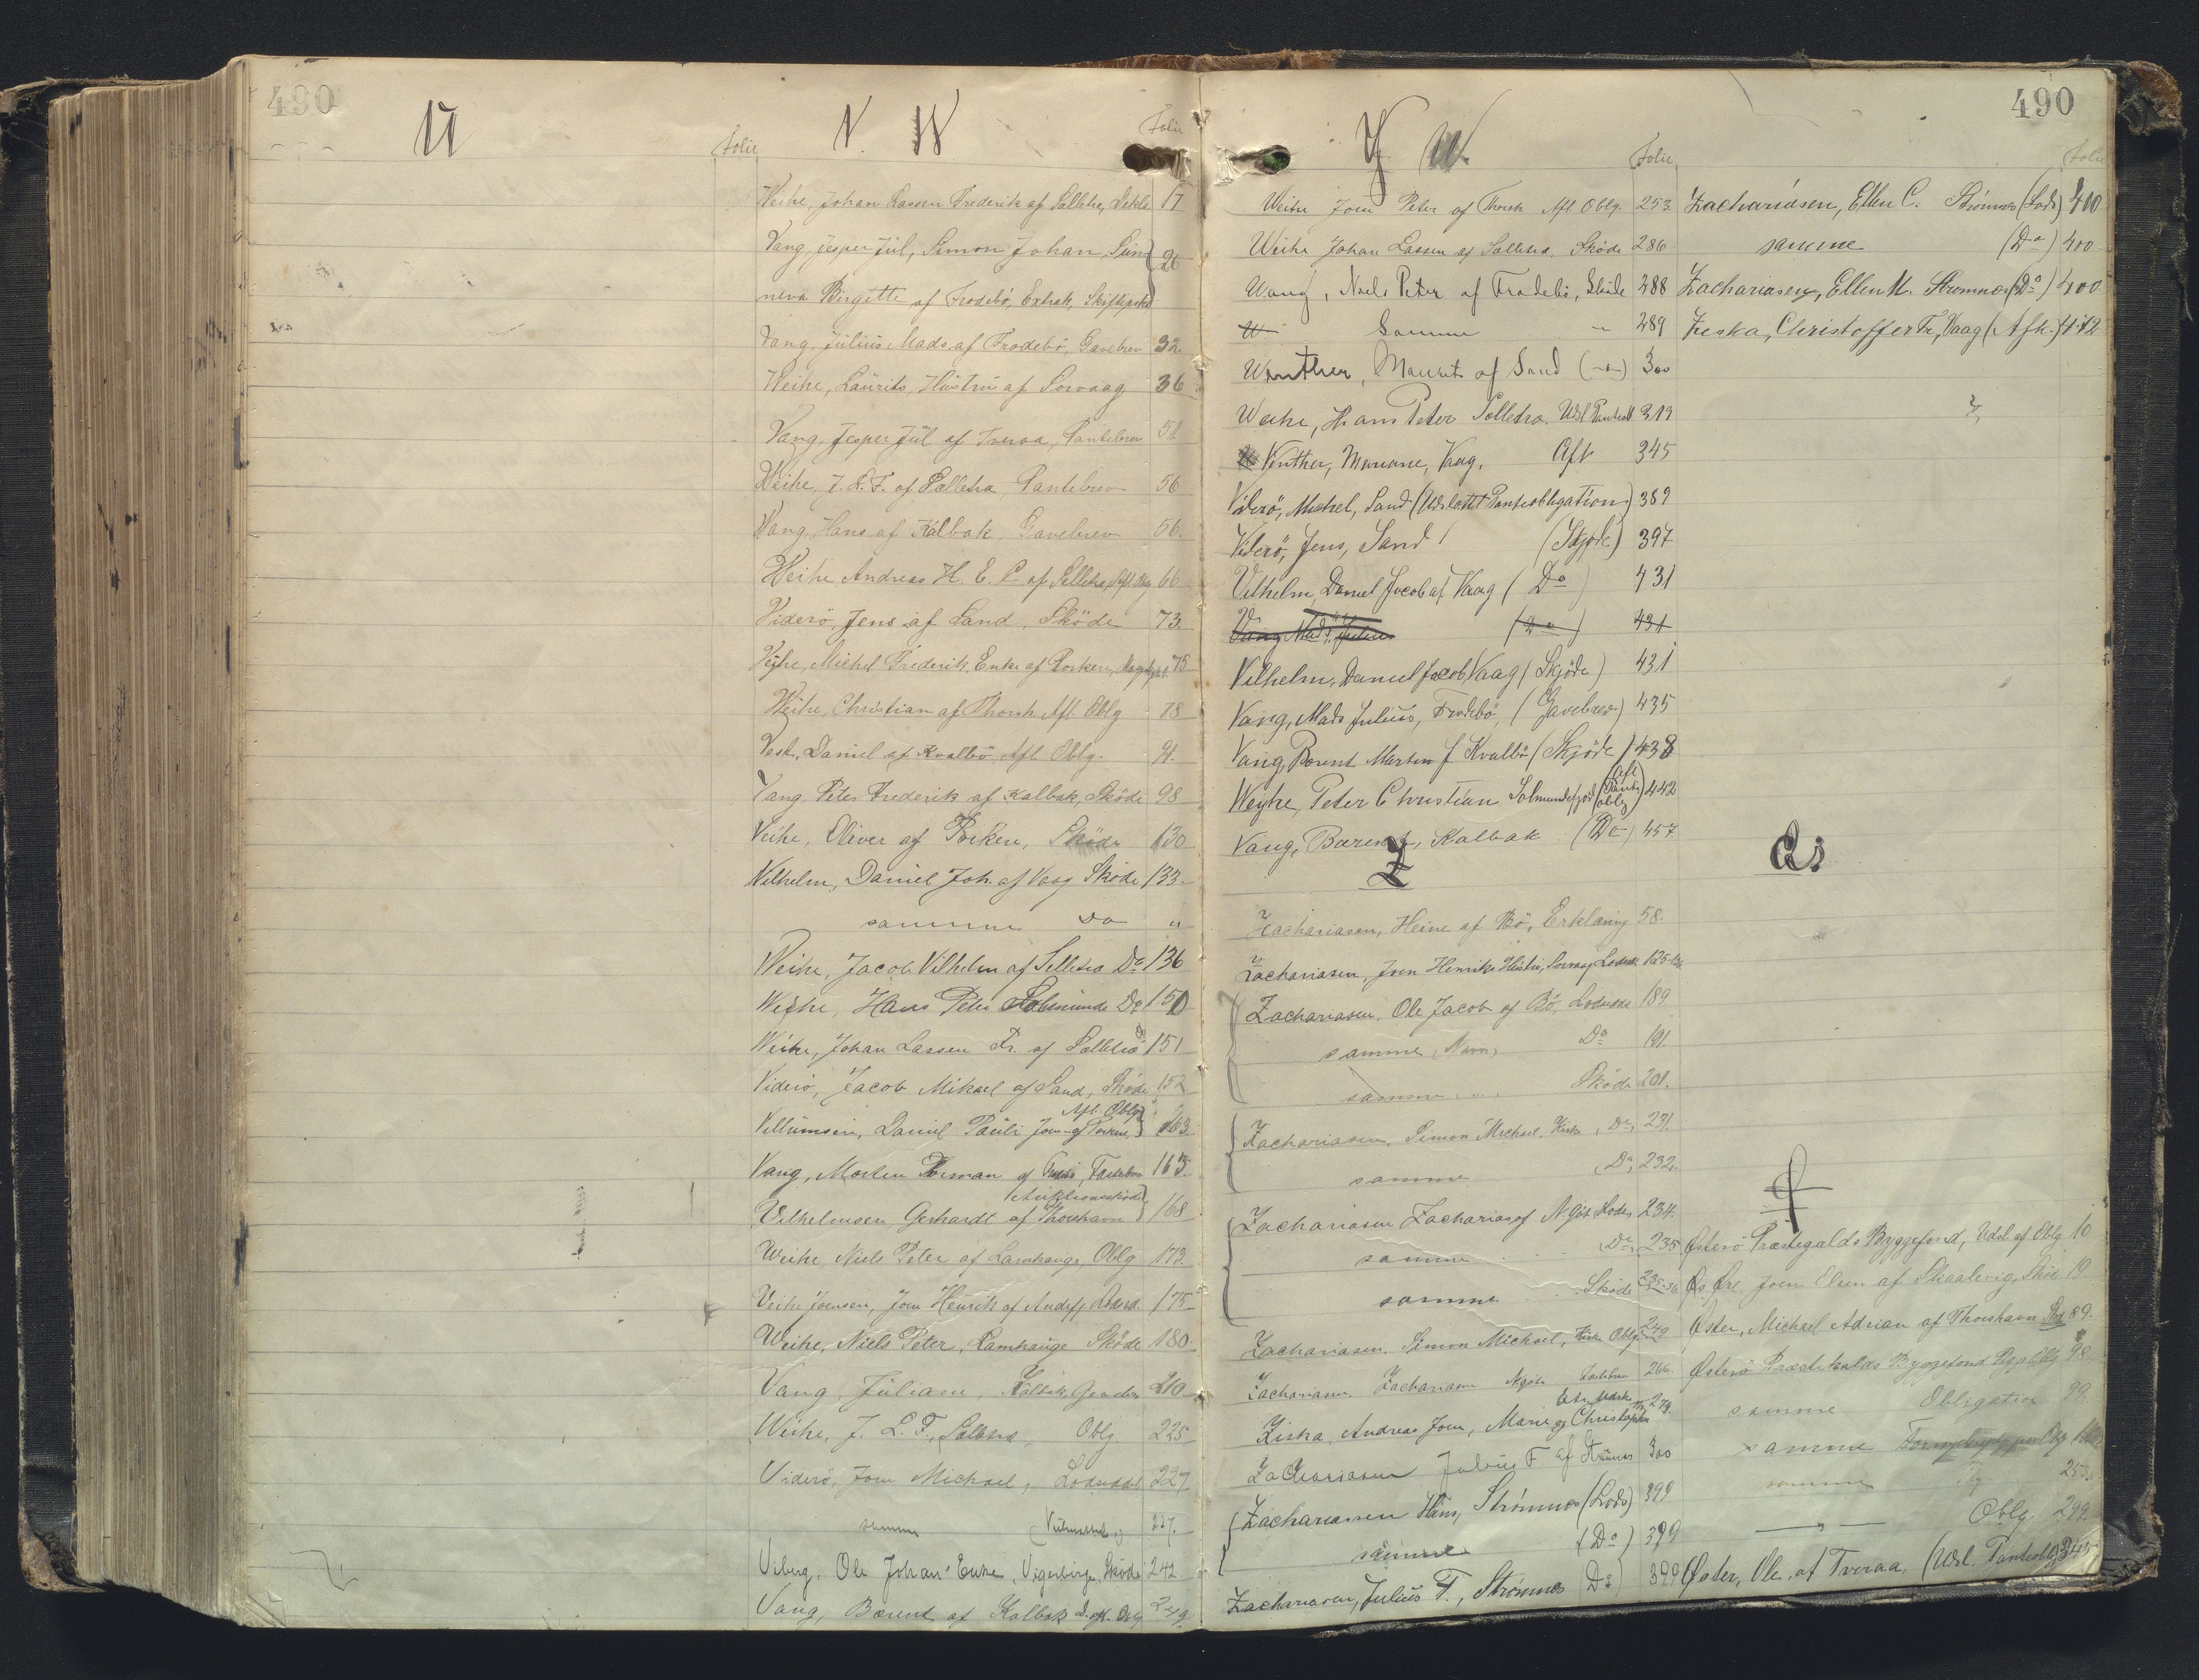 490
U
Folie
V. W
Folie
Weihe, Johan Lassen Frederik af Selletra, Dekla 17
Vang, Jesper Jul, Simon Johan, Sun-
neva Birgitte af Frodebö, Extrak, Skiftepro 26
Vang, Julius Mads, af Frodebö, Gavebrev 32.
Weihe, Laurits, Hustru af Sorvaag 36
Vang, Jesper Jul af Tveraa, Pantebrev 51
Weihe, J. L. F. af Selletra, Pantebrev 56
Vang, Hans af Kalbak, Gavebrev 56.
Weihe Andreas H. E. P. af Selletra, Aft. Oblg 66
Viderö, Jens af Sand, Sköde 73.
Vejhe, Michel Frederik, Enke af Porkeri, 75
Weihe, Christian af Thorsh Aft Oblg 78
Vest, Daniel af Kvalbö Aft Oblg. 91.
Vang, Peter Frederik af Kalbak, Sköde 98
Veihe, Oliver af Porkeri, Sköde 130
Vilhelm, Daniel Joh. af Vaag Sköde 133.
samme Do "
Weihe, Jacob Vilhelm af Selletra Do 136
Weihe, Hans Peter Solmunde Do 150
Weihe, Johan Lassen Fr. af Selletra Do 151
Viderö, Jacob Mikael af Sand, Sköde 152
Villumsen, Daniel Pauli Joen af Aft Oblg 163
Vang, Morten Forman af 165.
Auktionssköde
Vilhelmsen, Gerhardt af Thorshavn 168
Weihe, Niels Peter af Lamhauge, Oblg 173.
Veihe Joensen, Joen Henrik af Andefj. Lodsed. 175
Weihe, Niels Peter, Lamhauge Sköde 180.
Vang, Juliane, Kalbak, 210
Weihe, J. L. F., Selletra, Oblg. 225
Viderö, Joen Michael, Lodseddel 227.
samme 227.
Viberg, Ole Johan's Enke, Vigerbirge, Sköde 242.
Vang, Barent af Kalbak 249
490
V W.
Folie
Weihe Joen Peter af Thorsh Aft Oblg. 253.
Weihe Johan Lassen af Selletra, Sköde 286
Wang, Niels Peter af Frodebö, Sköde 288
W Samme " 289
Winther, Maurits af Sand (-"-) 300
Weihe, Hans Peter Selletra. Udsl Panteobl 319
Vinther, Mariane, Vaag. Aft 345
Viderö, Michel, Sand (Udslettet Panteobligation) 389
Viderö, Jens, Sand (Skjöde) 397
Vilhelm, Daniel Jacob af Vaag (Do) 431
Vang Mads Julius (Do) 431
Vilhelm, Daniel Jacob Vaag (Skjöde) 431
Vang, Mads Julius, Frodebö, (Gavebrev) 435
Vang, Barent Morten f Kvalbö (Skjöde) 438
Weyhe, Peter Christian Solmundefjord (Aft Pante oblg) 442
Vang, Barent, Kalbak (Do) 457
Z
Zachariasen, Heine af Bö, Erklæring 58.
Zachariasen, Joen Henriks Hustru, Sorvaag Lodsed.
Zachariasen, Ole Jacob af Bö, Lodsedd 189
samme, Do 191.
samme Sköde 201.
Zachariasen, Simon Michael, Kirke, Do, 231.
samme Do, 232.
Zachariasen Zacharias af N.göt Lods, 234.
samme Do, 235
samme Sköde 235-36
Zachariasen, Simon Michael, Kirke Oblg 249
Zachariasen, Zacharias Ngöte 266.
Ziska, Andreas Joen, Marie og Christopher 279.
Zachariasen Julius F. af Strömnes 300
Zachariasen Hans, Strömnes (Lods) 399
samme (Do) 399
Zachariasen, Julius F., Strömnes (Do) 399
Folie
Zachariasen, Ellen C. Strömnes (Lods) 400
samme (Do) 400
Zachariasen, Ellen M. Strömnes (Do) 400
Ziska, Christoffer Fr, Vaag (Afk.) 412
Æ
Ø
Österö Præstegjalds Byggefond, Udsl af Oblg 10
Joen Elsen af Skaalevig, 19
Øster, Michael Adrian af Thorshavn 89.
Österö Præstekalds Byggefond 98
samme Obligation 99.
samme
samme 253.
" Oblg. 299.
Øster, Ole, af Tveraa. (Udsl. Panteoblg) 345